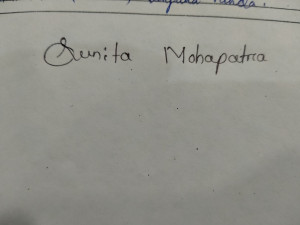 Sunita Mohapatra